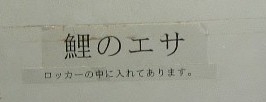 鯉のエサ
ロッカーの中に入れてあります。